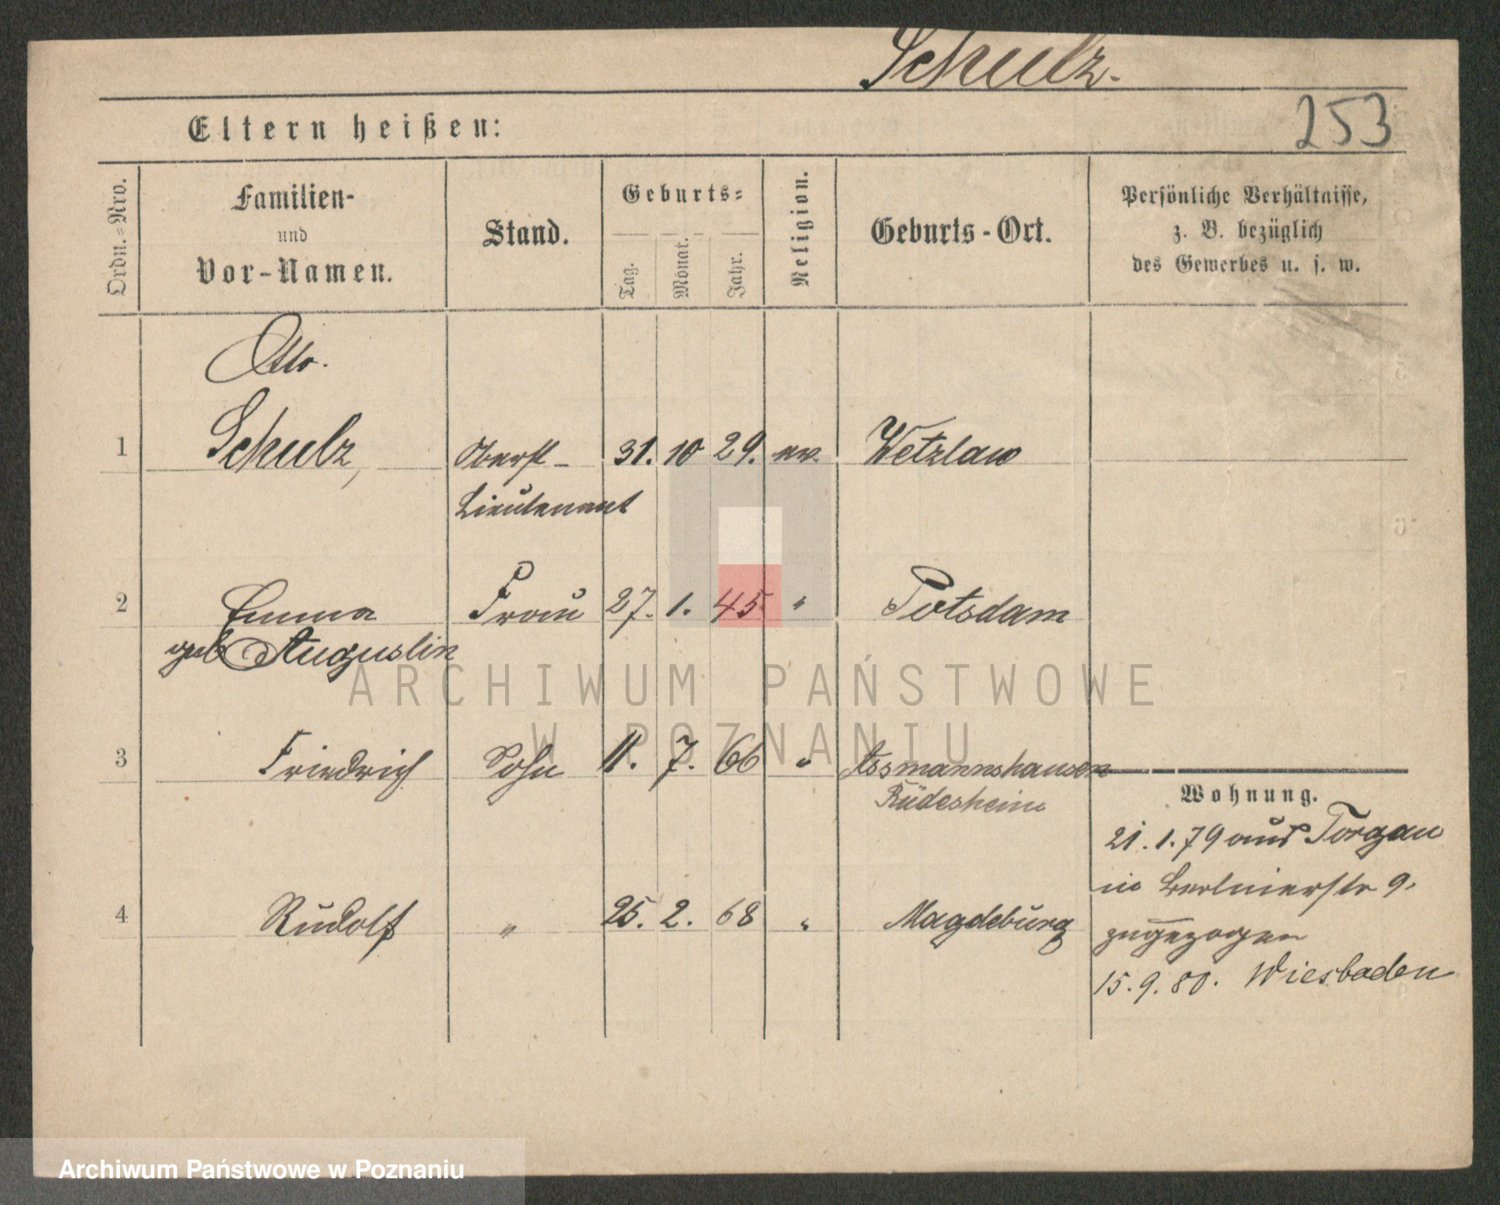 Schulz.
253
Eltern heißen:
Ordn.=Nro.
Familien-
und
Vor-Namen.
Stand.
Geburts=
Tag.
Monat.
Jahr.
Religion.
Geburts-Ort.
Persönliche Verhältnisse,
z. B. bezüglich
des Gewerbes u. s. w.
Otto.
1 Schulz, Oberst- 31. 10 29. ev. Wetzlar
Lieutenant
2 Emma Frau 27. 1. 45. " Potsdam
geb Augustin
3 Friedrich Sohn 11. 7. 66 " Assmannshausen
Rüdesheim
Wohnung.
21.1.79 aus Torgau
in Berlinerstr 9.
4 Rudolf " 25. 2. 68 " Magdeburg
zugezogen
15.9.80. Wiesbaden
ARCHIWUM PAŃSTWOWE
W POZNANIU
Archiwum Państwowe w Poznaniu